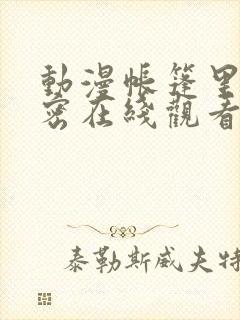 動漫帳篷里
密在綫觀看
泰勒斯威夫特